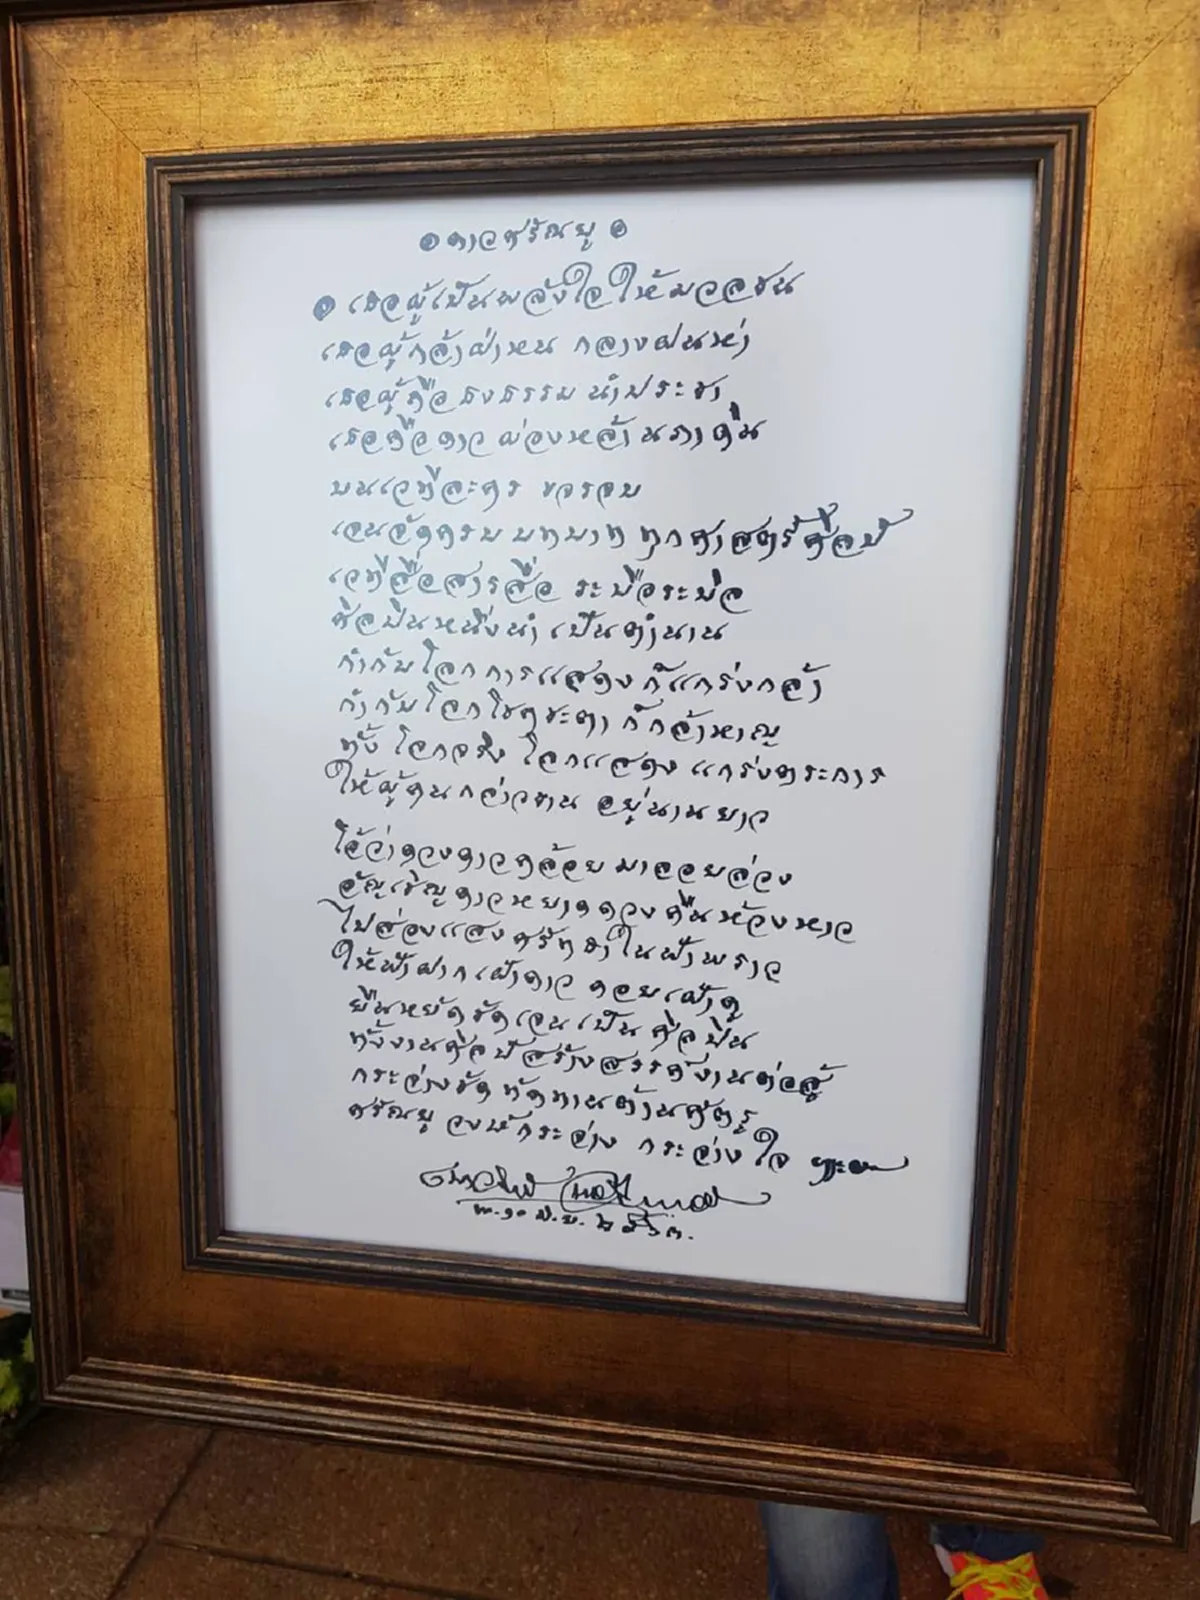 ๏ ดาวศรัณยู ๏
๏ เธอผู้เป็นพลังใจให้มวลชน
เธอผู้กล้าฝ่าหน กลางฝนห่า
เธอผู้ถือธงธรรม นำประชา
เธอคือดาวผ่องหล้า นภาคืน
บนเวทีละคร ขจรจบ
เจนจัดครบ บทบาท ทุกศาสตร์ศิลป์
เวทีสื่อสารสื่อ ระบือระบิล
ศิลปินหนึ่งนี้ เป็นตำนาน
กำกับโลกการแสดง ก็แกร่งกล้า
กำกับโลกโชคชะตา ก็กล้าหาญ
ทั้งโลกจริง โลกแสดง แกร่งตระการ
ให้ผู้คนกล่าวขาน อยู่นานยาว
โอ้ว่าดวงดาวคล้อย มาลอยล่วง
อัญเชิญดาวหยาดดวง คืนห้วงหาว
ไปส่องแสงศรัทธาในฟ้าพราว
ให้ฟ้าฝากเฝ้าดาว คอยเฝ้าดู
ยืนหยัดชัดเจน เป็นศิลปิน
ทั้งงานศิลป์สร้างสรรค์งานต่อสู้
กระจ่างชัด ทัดทานต้านศัตรู
ศรัณยู วงษ์กระจ่าง กระจ่างใจ
เนาวรัตน์ พงษ์ไพบูลย์